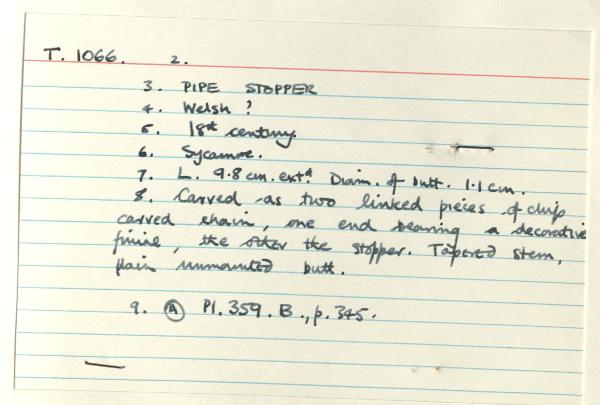 T. 1066. 2.
3. PIPE STOPPER
4. Welsh ?
5. 18th century
6. Sycamore.
7. L. 9.8 cm. extd. Diam. of butt. 1.1 cm.
8. Carved as two linked pieces of chip
carved chain, one end bearing a decorative
finial, the other the stopper. Tapered stem,
plain unmounted butt.
9. A Pl. 359. B., p. 345.